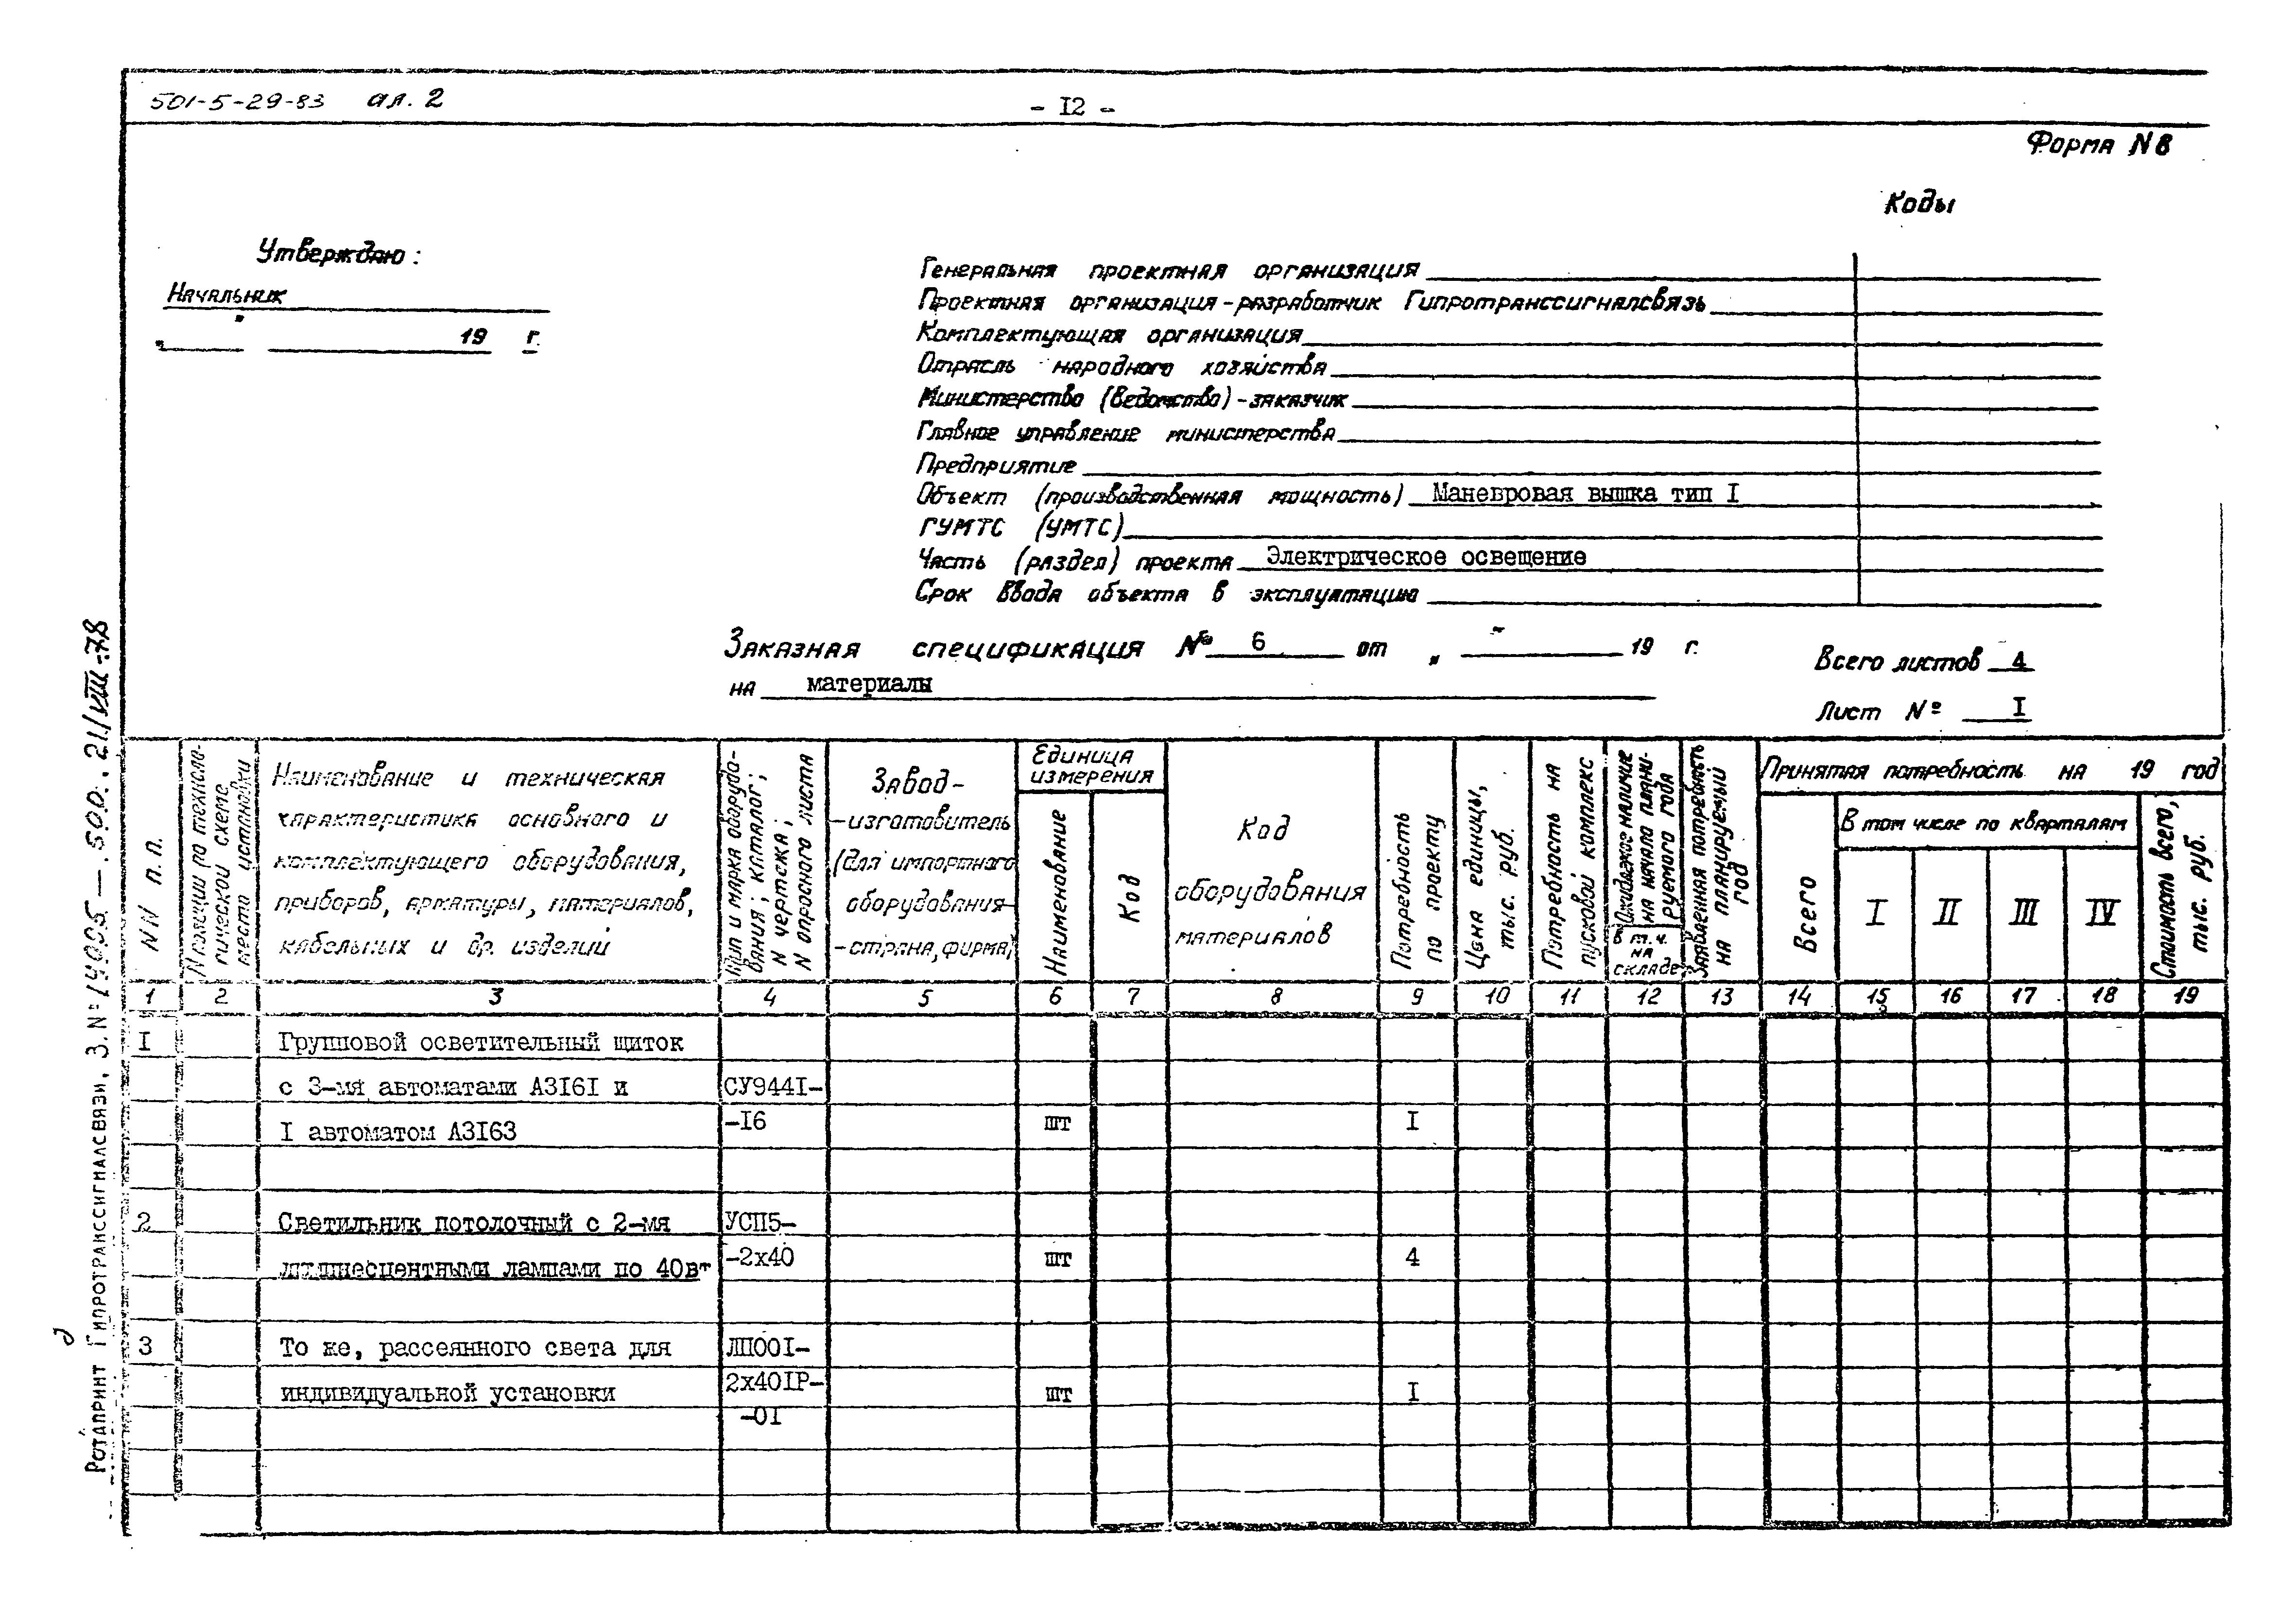 501-5-29-83 ал. 2
- I2 -
Форма N 8
Коды
Утверждаю:
Начальник
" " 19 г.
Генеральная проектная организация
Проектная организация-разработчик Гипротранссигналсвязь
Комплектующая организация
Отрасль народного хозяйства
Министерство (ведомство)-заказчик
Главное управление министерства
Предприятие
Объект (производственная мощность) Маневровая вышка тип I
ГУМТС (УМТС)
Часть (раздел) проекта Электрическое освещение
Срок ввода объекта в эксплуатацию
Заказная спецификация № 6 от " " 19 г.
на материалы
Всего листов 4
Лист № I
NN п.п.
N позиции по технологической схеме места установки
Наименование и техническая
характеристика основного и
комплектующего оборудования,
приборов, арматуры, материалов,
кабельных и др. изделий
Тип и марка оборудо-
вания; каталог;
N чертежа;
N опросного листа
Завод-
-изготовитель
(для импортного
оборудования-
-страна, фирма)
Единица
измерения
Наименование
Код
Код
оборудования
материалов
Потребность
по проекту
Цена единицы,
тыс. руб.
Потребность на
пусковой комплекс
Ожидаемое наличие
на начало плани-
руемого года
в т.ч.
на
складе
Заявленная потребность
на планируемый
год
Принятая потребность на 19 год
Всего
В том числе по кварталам
I II III IV
Стоимость всего,
тыс. руб.
1 2 3 4 5 6 7 8 9 10 11 12 13 14 15 16 17 18 19
I Групповой осветительный щиток
с 3-мя автоматами А3I6I и СУ944I-
I автоматом А3I63 -I6 шт I
2 Светильник потолочный с 2-мя УСП5-
люминесцентными лампами по 40вт -2х40 шт 4
3 То же, рассеянного света для ЛП00I-
индивидуальной установки 2х40IР- шт I
-0I
Ротапринт Гипротранссигналсвязи, З.№14995 — 500. 21/VIII-78